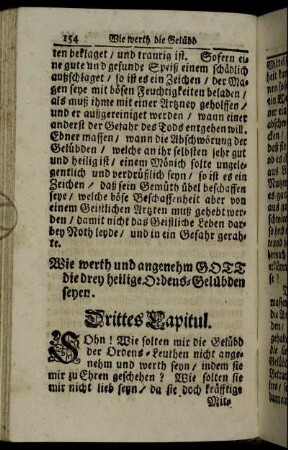 154 Wie werth die Gelübd
ten beklaget / und traurig ist. Sofern ei-
ne gute und gesunde Speiß einem schädlich
außschlaget / so ist es ein Zeichen / der Ma-
gen seye mit bösen Feuchtigkeiten beladen /
als muß ihme mit einer Artzney geholffen /
und er außgereiniget werden / wann einer
anderst der Gefahr des Tods entgehen will.
Ebner massen / wann die Abschwörung der
Gelübden / welche an ihr selbsten sehr gut
und heilig ist / einem Mönich solte ungele-
gentlich und verdrüßlich seyn / so ist es ein
Zeichen / daß sein Gemüth übel beschaffen
seye / welche böse Beschaffenheit aber von
einem Geistlichen Artzten muß gehebt wer-
den / damit nicht das Geistliche Leben dar-
bey Noth leyde / und in ein Gefahr gerah-
te.
Wie werth und angenehm GOTT
die drey heilige Ordens-Gelübden
seyen.
Drittes Capitul.
SOhn! Wie solten mir die Gelübd
der Ordens-Leuthen nicht ange-
nehm und werth seyn / indem sie
mir zu Ehren geschehen? Wie solten sie
mir nicht lieb seyn / da sie doch kräfftige
Mit-